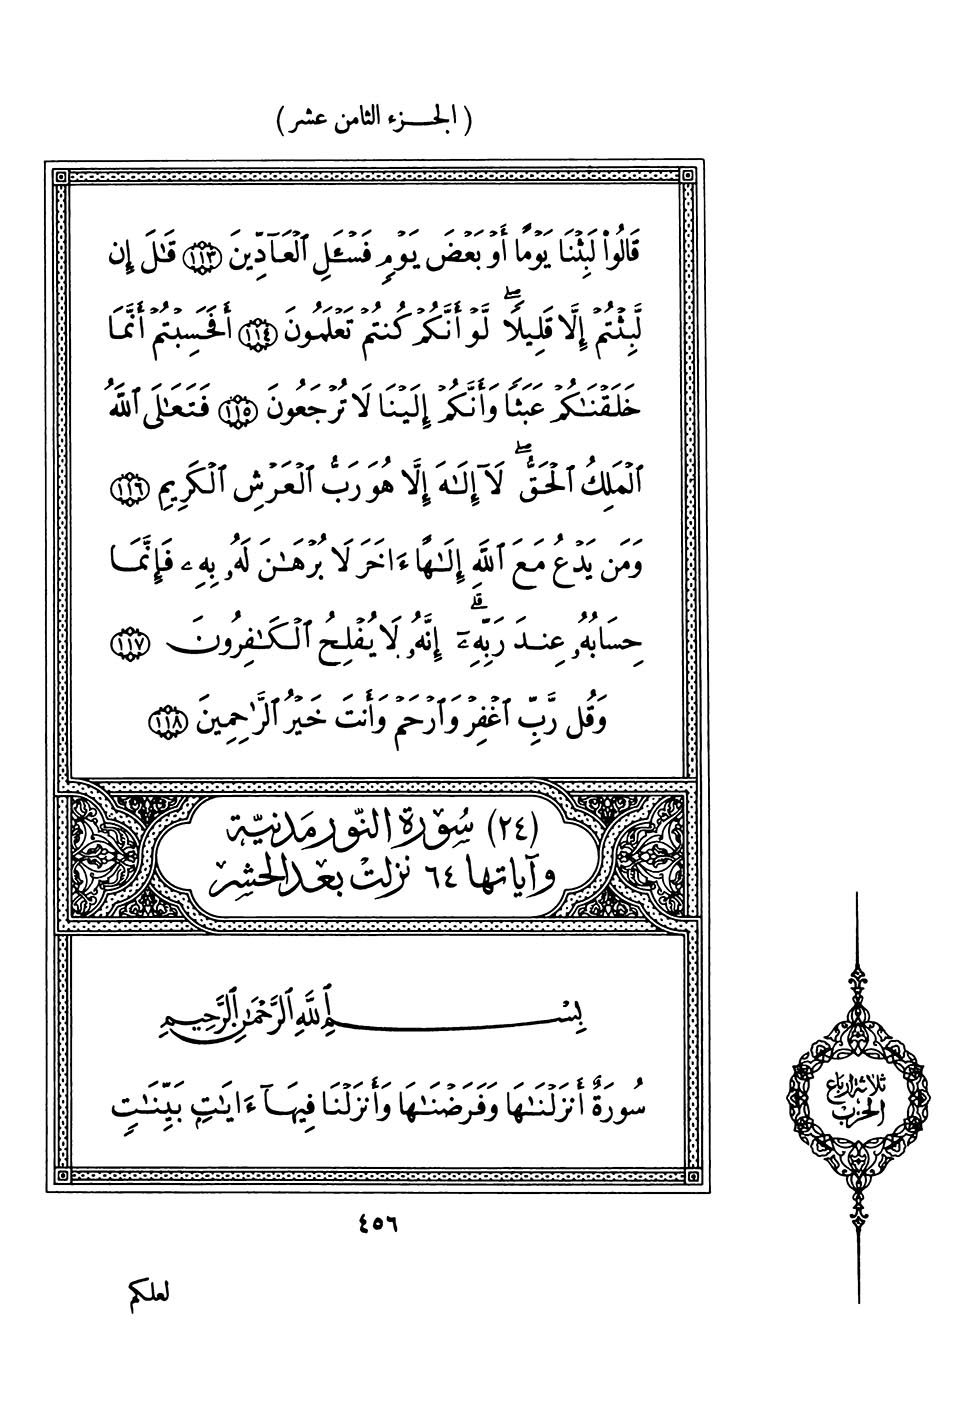 (الجزء الثامن عشر)
قَالُواْ لَبِثْنَا يَوْمًا أَوْ بَعْضَ يَوْمٍ فَسْـَٔلِ ٱلْعَآدِّينَ ١١٣ قَـٰلَ إِن
لَّبِثْتُمْ إِلَّا قَلِيلًا ۖ لَّوْ أَنَّكُمْ كُنتُمْ تَعْلَمُونَ ١١٤ أَفَحَسِبْتُمْ أَنَّمَا
خَلَقْنَـٰكُمْ عَبَثًا وَأَنَّكُمْ إِلَيْنَا لَا تُرْجَعُونَ ١١٥ فَتَعَـٰلَى ٱللَّهُ
ٱلْمَلِكُ ٱلْحَقُّ ۖ لَآ إِلَـٰهَ إِلَّا هُوَ رَبُّ ٱلْعَرْشِ ٱلْكَرِيمِ ١١٦
وَمَن يَدْعُ مَعَ ٱللَّهِ إِلَـٰهًا ءَاخَرَ لَا بُرْهَـٰنَ لَهُۥ بِهِۦ فَإِنَّمَا
حِسَابُهُۥ عِندَ رَبِّهِۦٓ ۗ إِنَّهُۥ لَا يُفْلِحُ ٱلْكَـٰفِرُونَ ١١٧
وَقُل رَّبِّ ٱغْفِرْ وَٱرْحَمْ وَأَنتَ خَيْرُ ٱلرَّٰحِمِينَ ١١٨
(٢٤) سُورة النّور مَدنيّة
وآياتها ٦٤ نزلت بعد الحشر
بِسْمِ ٱللَّهِ ٱلرَّحْمَـٰنِ ٱلرَّحِيمِ
سُورَةٌ أَنزَلْنَـٰهَا وَفَرَضْنَـٰهَا وَأَنزَلْنَا فِيهَآ ءَايَـٰتٍۭ بَيِّنَـٰتٍ
ثلاثة ارباع
الحزب
٤٥٦
لعلكم